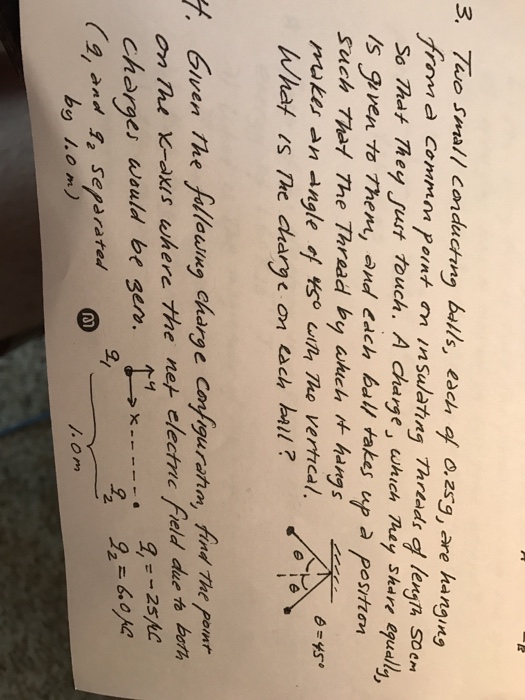 3. Two small conducting balls, each of 0.25g, are hanging
from a common point on insulating Threads of length 50cm
So that They just touch. A charge, which They share equally,
is given to Them, and each ball takes up a position
such that The Thread by which it hangs
makes an angle of 45° with The vertical.
What is The charge on each ball?
θ θ
θ=45°
4. Given the following charge configuration, find the point
on the x-axis where the net electric field due to both
charges would be zero.
(q₁ and q₂ separated
by 1.0m)
N
y
x
q₁
q₂
1.0m
q₁=-25μC
q₂=6.0μC